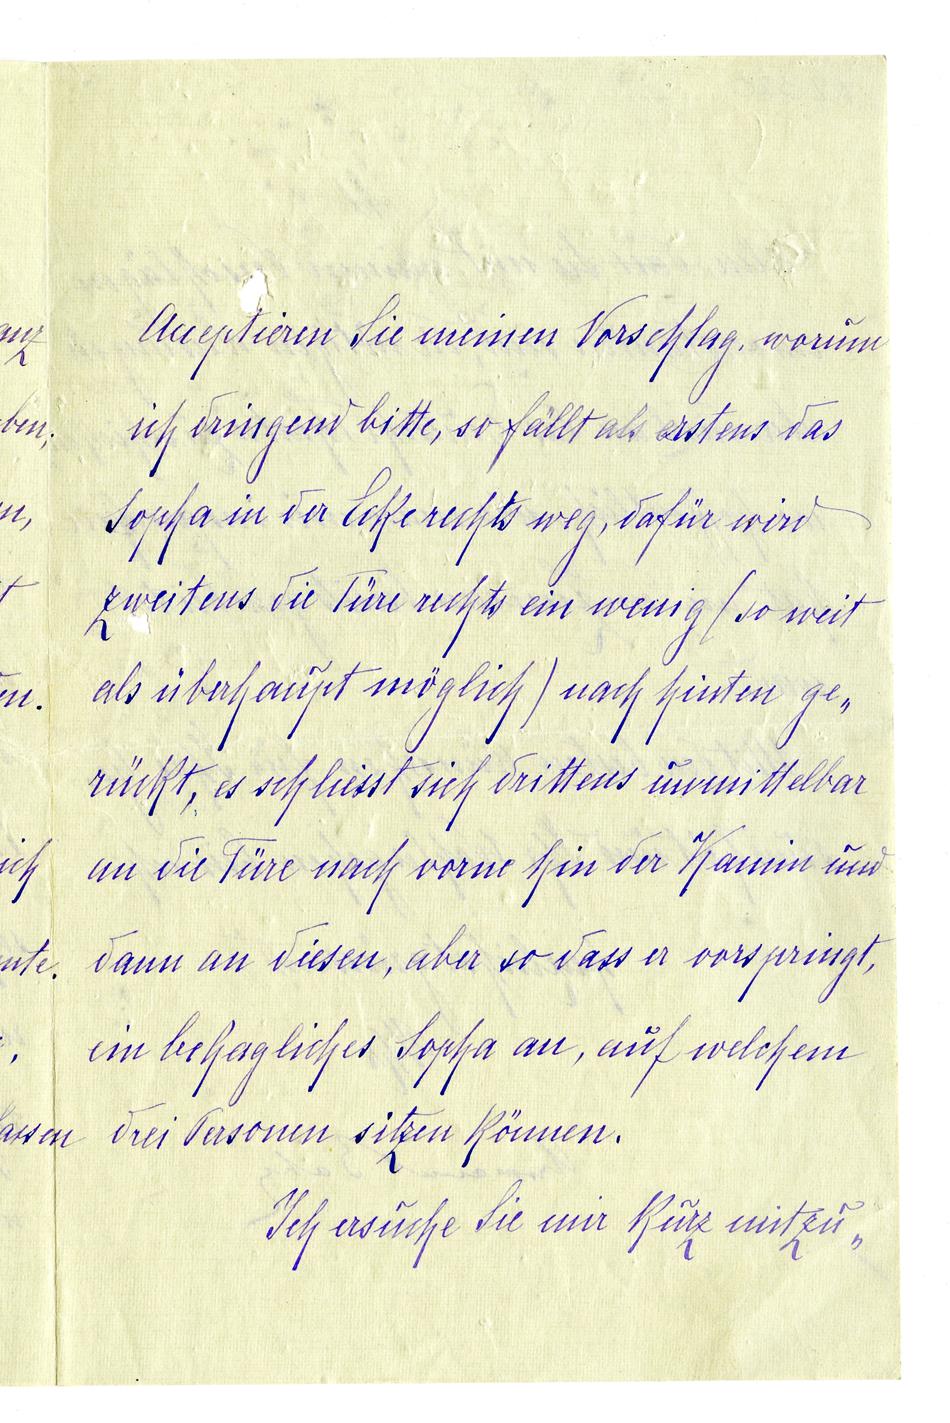 anz
ben,
n,
t
en.
ich
nte.
,
lassen
Acceptieren Sie meinen Vorschlag, worum
ich dringend bitte, so fällt als erstens das
Sopha in der Ecke rechts weg, dafür wird
zweitens die Türe rechts ein wenig (so weit
als überhaupt möglich) nach hinten ge„
rückt, es schliesst sich drittens unmittelbar
an die Türe nach vorne hin der Kamin und
dann an diesen, aber so dass er vorspringt,
ein behagliches Sopha an, auf welchem
drei Personen sitzen können.
Ich ersuche Sie mir kurz mitzu„